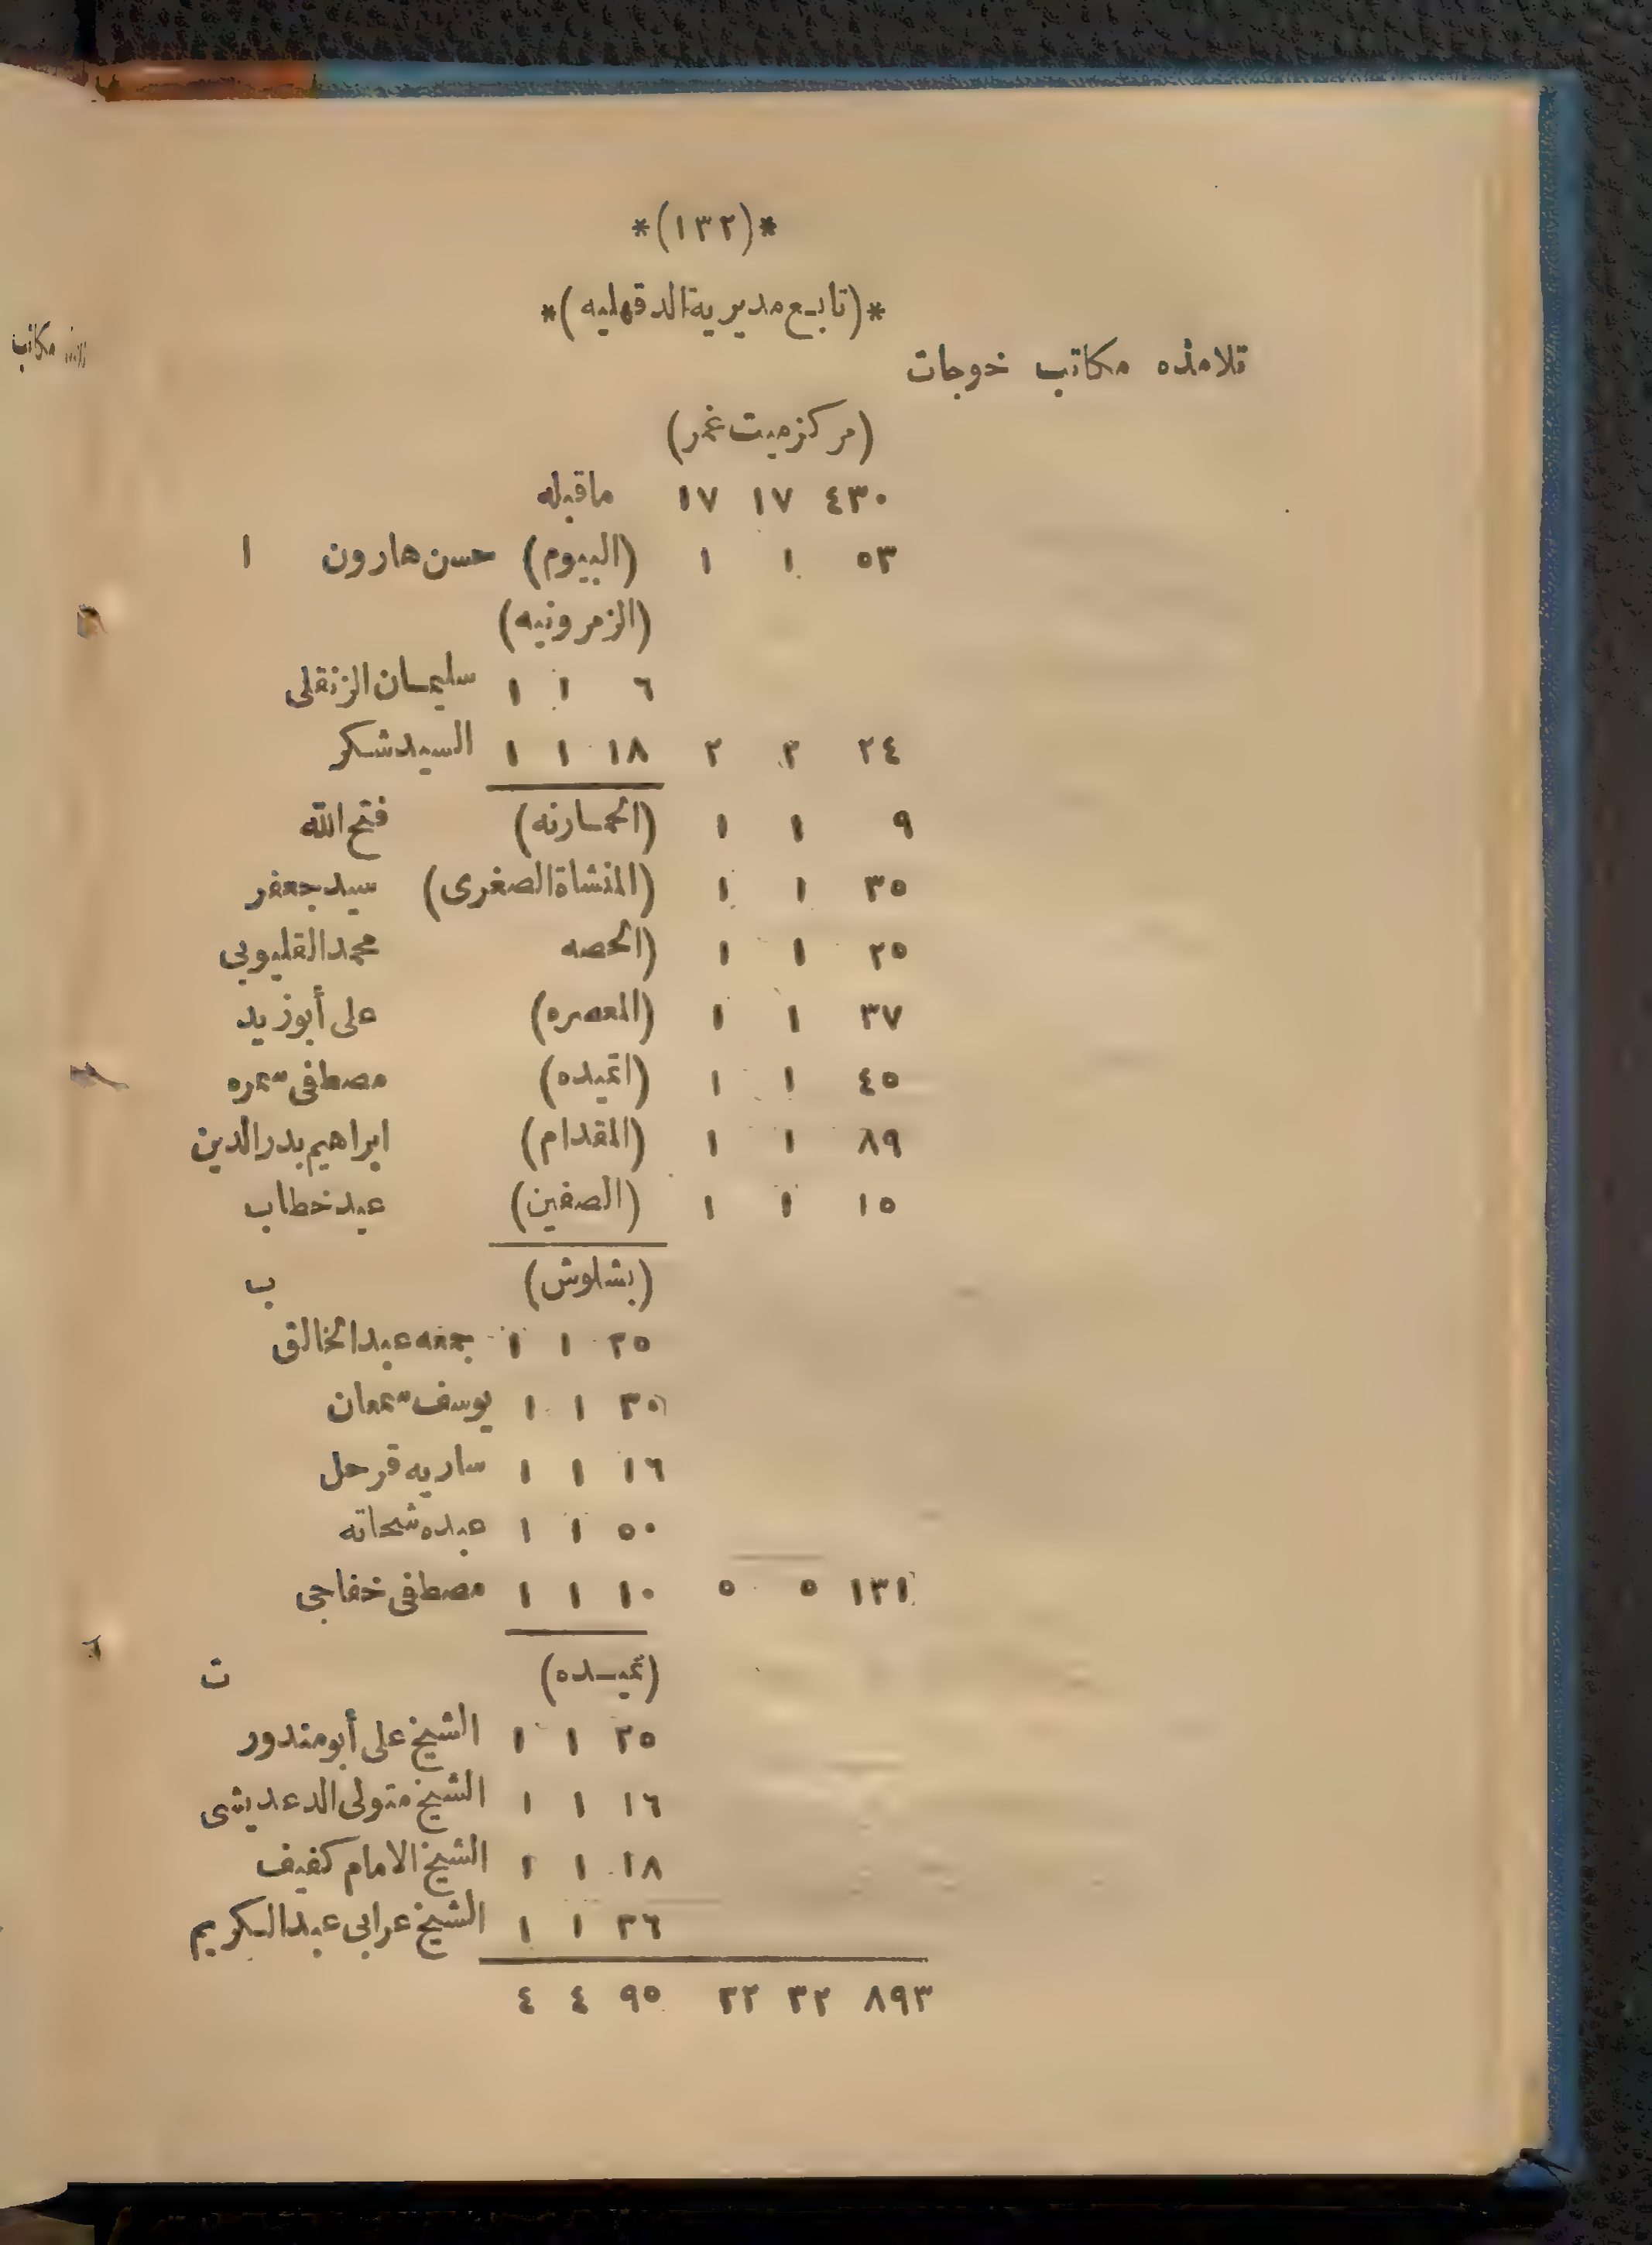 *(١٣٢)*
*(تابع مديرية الدقهليه)*
تلامذه مكاتب خوجات
(مركز ميت غمر)
٤٣٠ ١٧ ١٧ ماقبله
٥٣ ١ ١ (البيوم) حسن هارون ا
(الزمرونيه)
٦ ١ ١ سليمان الزنقلى
٢٤ ٢ ٢ ١٨ ١ ١ السيد شكر
٩ ١ ١ (الحمارنه) فتح الله
٣٥ ١ ١ (المنشاة الصغرى) سيد جعفر
٢٥ ١ ١ (الحصه محمد القليوبى
٣٧ ١ ١ (المعصره) على أبو زيد
٤٥ ١ ١ (اتميده) مصطفى سمره
٨٩ ١ ١ (المقدام) ابراهيم بدر الدين
١٥ ١ ١ (الصفين) عيد خطاب
(بشلوش) ب
٢٥ ١ ١ جمعه عبد الخالق
٣٠ ١ ١ يوسف سمعان
١٦ ١ ١ ساريه قرحل
٥٠ ١ ١ عبده شحاته
١٣١ ٥ ٥ ١٠ ١ ١ مصطفى خفاجى
(تميده) ت
٢٥ ١ ١ الشيخ على أبو مندور
١٦ ١ ١ الشيخ متولى الدعديشى
١٨ ١ ١ الشيخ الامام كفيف
٣٦ ١ ١ الشيخ عرابى عبد الكريم
٨٩٣ ٣٢ ٣٢ ٩٥ ٤ ٤